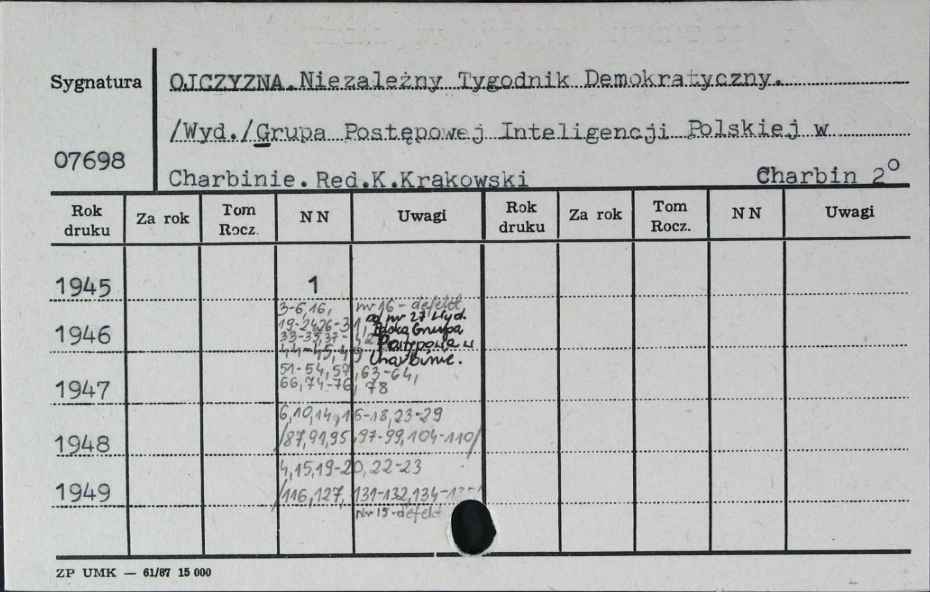 Sygnatura OJCZYZNA. Niezależny Tygodnik Demokratyczny.
/Wyd./Grupa Postępowej Inteligencji Polskiej w
07698 Charbinie. Red.K.Krakowski Charbin 2°
Rok druku Za rok Tom Rocz. NN Uwagi Rok druku Za rok Tom Rocz. NN Uwagi
1945 1
3-6,16, nr 16 - defekt
19-24,26-31, od nr 27 Wyd.
1946 33-35,37- Polska Grupa
Postępowa w
44-45,49 Charbinie.
51-54,59,63-64,
1947 66,74-76,78
6,10,14,16-18,23-29
1948 /87,91,95,97-99,104-110/
4,15,19-20,22-23
1949 /116,127,131-132,134-
Nr 15-defekt
ZP UMK — 61/87 15 000